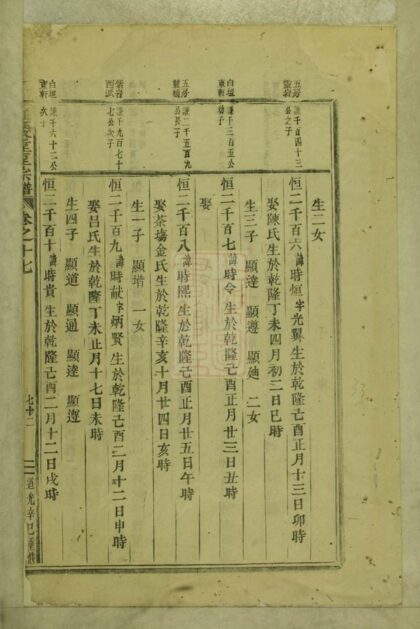 生二女
恒二千百六諱時恒字光翼生於乾隆己酉正月十三日卯時
娶陳氏生於乾隆丁未四月初二日巳時
生三子 顯達 顯遵 顯廸 二女
恒二千百七諱時令生於乾隆己酉正月廿三日丑時
娶
恒二千百八諱時熙生於乾隆己酉正月廿五日午時
娶茶塢金氏生於乾隆辛亥十月廿四日亥時
生一子 顯堦 一女
恒二千百九諱時獻字炳賢生於乾隆己酉二月十二日申時
娶呂氏生於乾隆丁未正月十七日未時
生四子 顯道 顯通 顯達 顯遵
恒二千百十諱時貴生於乾隆己酉二月十二日戌時
公之子
白垣
公長子
七公次子
白垣
謙千六十二公
次子
宗譜
卷之十七
七十二
道光辛巳重修